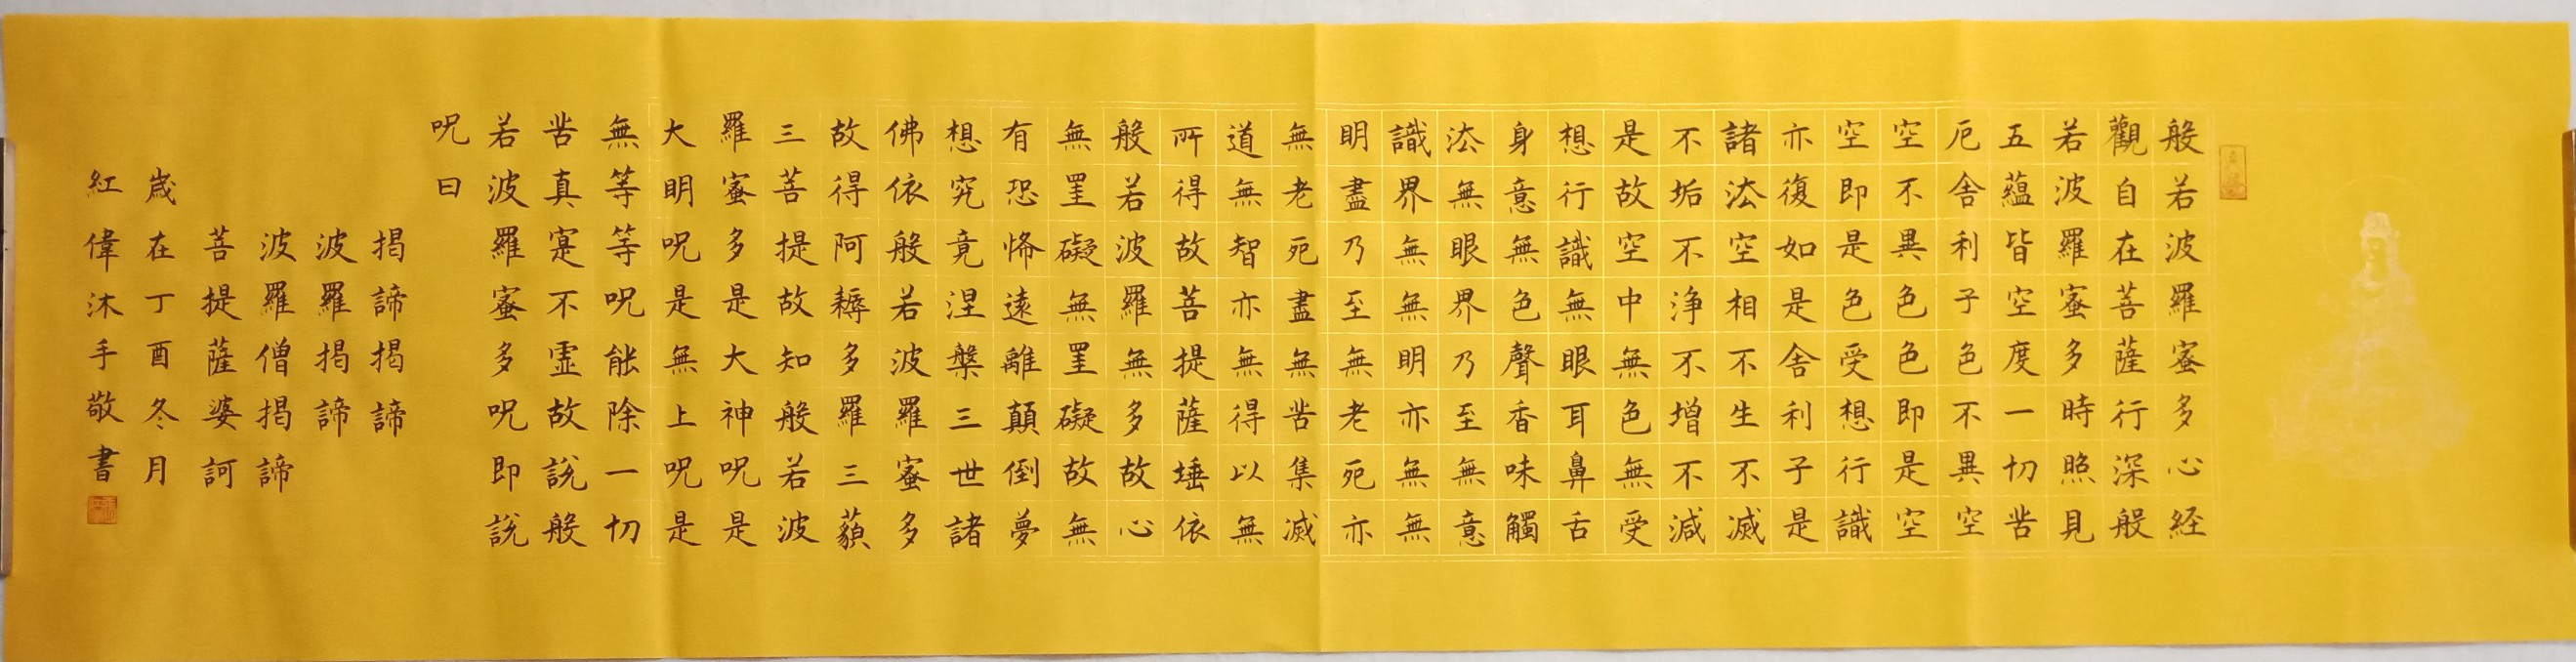 般若波羅蜜多心経
觀自在菩薩行深般
若波羅蜜多時照見
五蘊皆空度一切苦
厄舎利子色不異空
空不異色色即是空
空即是色受想行識
亦復如是舎利子是
諸法空相不生不滅
不垢不浄不增不減
是故空中無色無受
想行識無眼耳鼻舌
身意無色聲香味觸
法無眼界乃至無意
識界無無明亦無無
明盡乃至無老死亦
無老死盡無苦集滅
道無智亦無得以無
所得故菩提薩埵依
般若波羅無多故心
無罣礙無罣礙故無
有恐怖遠離顛倒夢
想究竟涅槃三世諸
佛依般若波羅蜜多
故得阿耨多羅三藐
三菩提故知般若波
羅蜜多是大神呪是
大明呪是無上呪是
無等等呪能除一切
苦真寔不虛故説般
若波羅蜜多呪即説
呪曰
揭諦揭諦
波羅揭諦
波羅僧揭諦
菩提薩婆訶
歲在丁酉冬月
紅偉沐手敬書